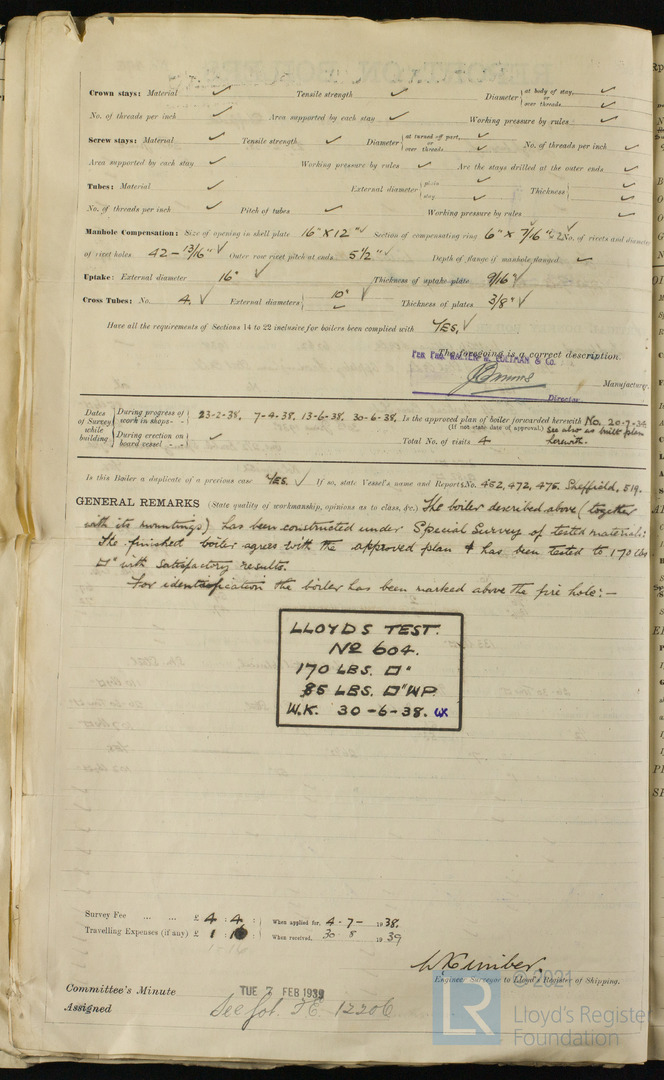 Crown stays: Material ✓ Tensile strength ✓ Diameter { at body of stay, ✓ or over threads ✓
No. of threads per inch ✓ Area supported by each stay ✓ Working pressure by rules ✓
Screw stays: Material ✓ Tensile strength ✓ Diameter { at turned off part, ✓ or over threads ✓ No. of threads per inch ✓
Area supported by each stay ✓ Working pressure by rules ✓ Are the stays drilled at the outer ends ✓
Tubes: Material ✓ External diameter { plain ✓ stay ✓ Thickness { ✓
No. of threads per inch ✓ Pitch of tubes ✓ Working pressure by rules ✓
Manhole Compensation: Size of opening in shell plate 16" × 12" ✓ Section of compensating ring 6" × 7/16" ✓ No. of rivets and diameter
of rivet holes 42 - 13/16" ✓ Outer row rivet pitch at ends 5 1/2" ✓ Depth of flange if manhole flanged ✓
Uptake: External diameter 16" ✓ Thickness of uptake plate 9/16" ✓
Cross Tubes: No. 4. ✓ External diameters { 10" ✓ Thickness of plates 3/8" ✓
Have all the requirements of Sections 14 to 22 inclusive for boilers been complied with YES. ✓
The foregoing is a correct description.
Manufacturer.
Director.
Dates of Survey while building { During progress of work in shops - - 23-2-38. 7-4-38. 13-6-38. 30-6-38. Is the approved plan of boiler forwarded herewith No. 20-7-34
(If not state date of approval.) See also as built plan
During erection on board vessel - - - ✓ Total No. of visits 4 herewith.
Is this Boiler a duplicate of a previous case YES. ✓ If so, state Vessel's name and Report No. 452, 472, 475. Sheffield. 519.
GENERAL REMARKS (State quality of workmanship, opinions as to class, &c.) The boiler described above (together
with its mountings) has been constructed under Special Survey of tested materials:
The finished boiler agrees with the approved plan & has been tested to 170 lbs
□" with satisfactory results.
For identification the boiler has been marked above the fire hole:-
LLOYDS TEST.
No 604.
170 LBS. □"
85 LBS. □" WP.
W.K. 30-6-38. WK
Survey Fee ... ... £ 4 : 4 : When applied for, 4-7- 1938.
Travelling Expenses (if any) £ 1 : When received, 30 8 1939
W Kimber.
Engineer Surveyor to Lloyd's Register of Shipping.
Committee's Minute TUE 7 FEB 1939
Assigned See F.E. 12206
© 2021
LR Lloyd's Register
Foundation